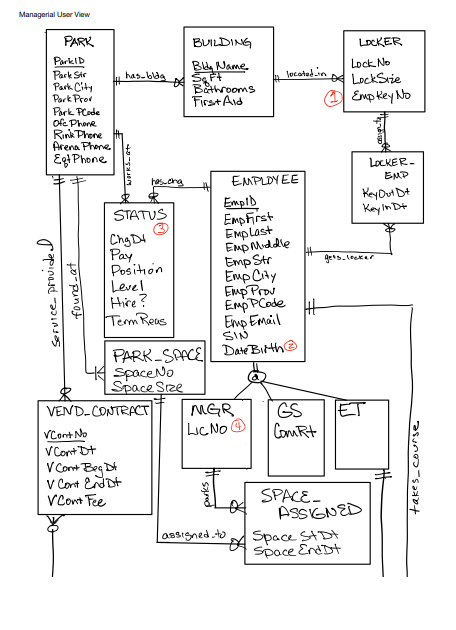 Managerial User View
PARK
ParkID
ParkStr
ParkCity
ParkProv
Park PCode
OfcPhone
RinkPhone
ArenaPhone
EqtPhone
has_bldg
BUILDING
Bldg Name
SqFt
Bathrooms
FirstAid
located_in
LOCKER
LockNo
LockSize
① EmpKeyNo
assign_to
LOCKER_
EMP
KeyOutDt
KeyInDt
gets_locker
works_at
has_chg
STATUS
③
ChgDt
Pay
Position
Level
Hire?
TermReas
EMPLOYEE
EmpID
EmpFirst
EmpLast
EmpMiddle
EmpStr
EmpCity
EmpProv
EmpPCode
EmpEmail
SIN
DateBirth ②
d
service_provided
found_at
PARK_SPACE
SpaceNo
SpaceSize
VEND_CONTRACT
VContNo
VContDt
VCont BegDt
VCont EndDt
VCont Fee
MGR
LicNo ④
GS
ComRt
ET
takes_course
parks
SPACE_
ASSIGNED
Space StDt
Space EndDt
assigned_to